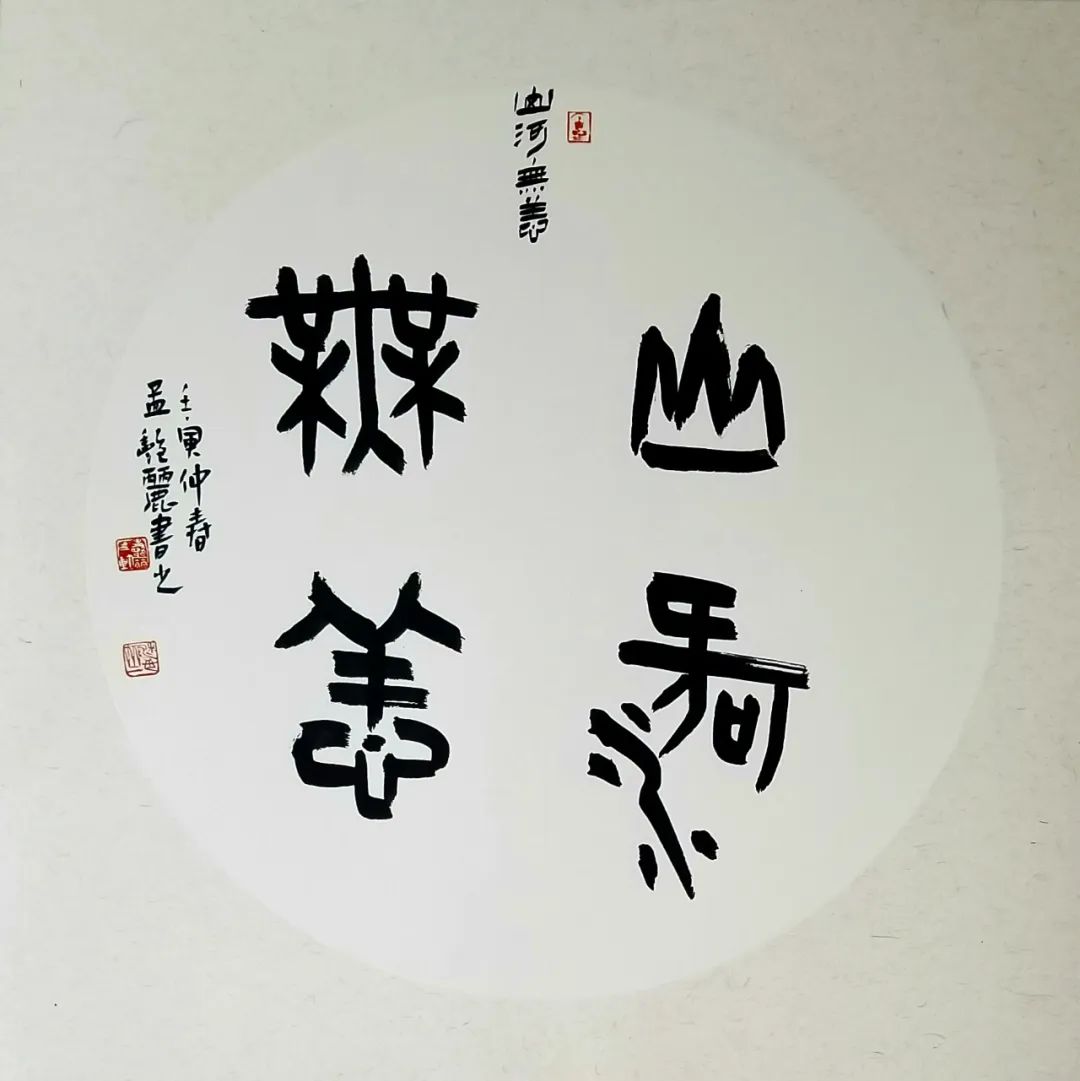 山河
無恙
山河無恙
壬寅仲春
孟艷麗書之